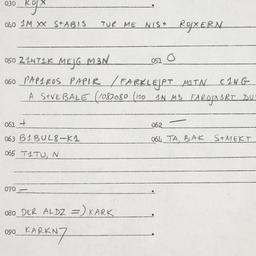 030 KOJX
040 1M XX S+ABIS TUR ME NIS+ ROJXERN
050 Z1N+1K MEJG M3N 051 O
060 PAP1ROS PAPIR / FARKLEJPT M1TN C1NG
A S+VEBALE (1082080 (100 1N M3 FAROJX3RT DU
061 + 062 —
063 B1BUL8-K1 064 TA, BAK S+MEKT
065 T1TU, N
070 —
080 DER ALDZ =) KARK
090 KARKN7